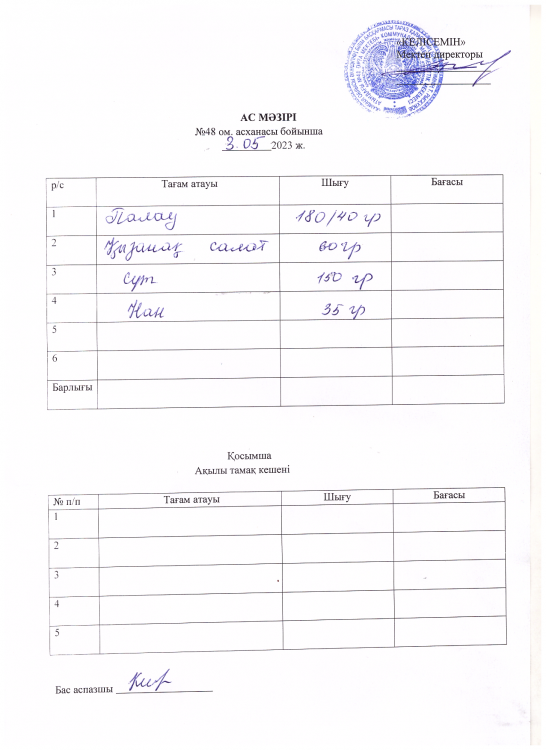 «КЕЛІСЕМІН»
Мектеп директоры
АС МӘЗІРІ
№48 ом. асханасы бойынша
3.05 2023 ж.
р/с Тағам атауы Шығу Бағасы
1 Палау 180/40 гр
2 Қызанақ салат 60 гр
3 сүт 150 гр
4 Нан 35 гр
5
6
Барлығы
Қосымша
Ақылы тамақ кешені
№ п/п Тағам атауы Шығу Бағасы
1
2
3
4
5
Бас аспазшы